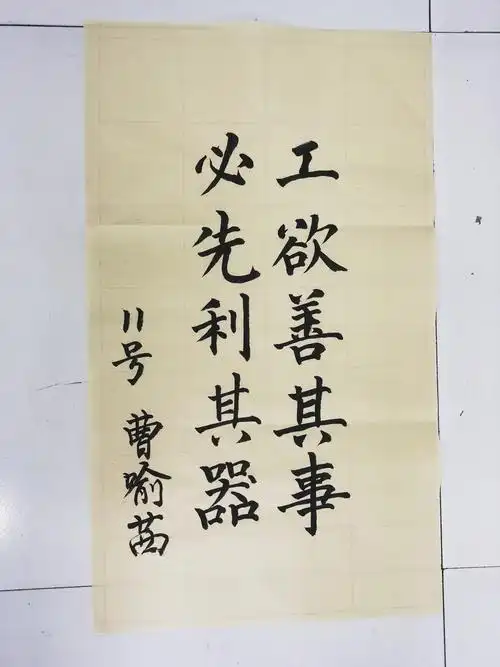 工欲善其事
必先利其器
11号 曹喻茜